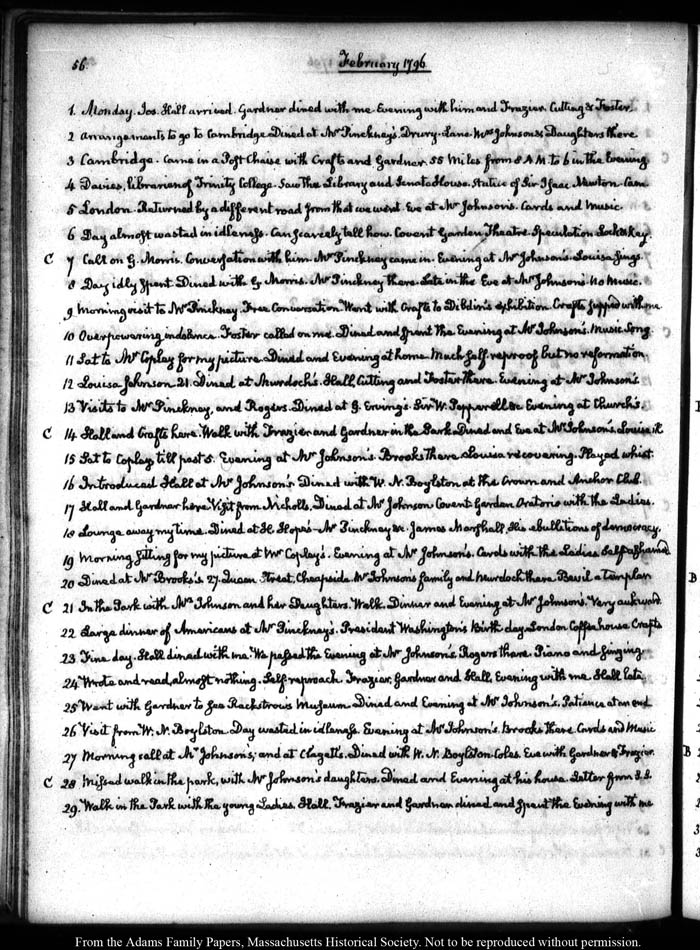 56.
February 1796.
1. Monday. Jos. Hall arrived. Gardner dined with me. Evening with him and Frazier. Cutting & Foster.
2 Arrangements to go to Cambridge. Dined at Mr Pinckney's. Drury-Lane. Mrs Johnson & Daughters there
3 Cambridge. Came in a Post Chaise with Crafts and Gardner. 55 Miles from 8 A.M. to 6 in the Evening
4 Davies, librarian of Trinity College. Saw the Library and Senate House. Statue of Sir Isaac Newton. Cam
5 London. Returned by a different road from that we went. Eve at Mr Johnson's. Cards and music.
6 Day almost wasted in idleness. Can scarcely tell how. Covent Garden Theatre. Speculation Lock & Key.
C 7 Call on G. Morris. Conversation with him. Mr Pinckney came in. Evening at Mr Johnson's. Louisa sings.
8 Day idly spent. Dined with G. Morris. Mr Pinckney there. Late in the Eve at Mr Johnson's. No Music.
9 Morning visit to Mr Pinckney. Free Conversation. Went with Crafts to Dibdin's exhibition. Crafts supped with me
10 Overpowering indolence. Foster called on me. Dined and spent the Evening at Mr Johnson's. Music Song.
11 Sat to Mr Copley for my picture. Dined and Evening at home. Much self reproof but no reformation.
12 Louisa Johnson. 21. Dined at Murdoch's. Hall Cutting and Foster there. Evening at Mr Johnson's.
13 Visits to Mr Pinckney, and Rogers. Dined at G. Erving's. Sir W. Pepperell &c. Evening at Church's.
C 14 Hall and Crafts here. Walk with Frazier and Gardner in the Park. Dined and Eve at Mr Johnson's. Louisa ill.
15 Sat to Copley till past 5. Evening at Mr Johnson's. Brooks there. Louisa recovering. Played whist.
16 Introduced Hall at Mr Johnson's. Dined with W. N. Boylston at the Crown and Anchor Club.
17 Hall and Gardner here. Visit from Nicholls. Dined at Mr Johnson. Covent Garden Oratorio with the Ladies.
18 Lounge away my time. Dined at H. Hope's. Mr Pinckney &c. James Marshall, His ebullitions of democracy.
19 Morning sitting for my picture at Mr Copley's. Evening at Mr Johnson's. Cards with the Ladies. Self ashamed
20 Dined at Mr Brooks's. 27. Queen Street, Cheapside. Mr Johnson's family and Murdoch there. Bevil a Templar
C 21 In the Park with Mrs Johnson and her Daughters. Walk. Dinner and Evening at Mr Johnson's. Very awkward.
22 Large dinner of Americans at Mr Pinckney's. President Washington's birth day. London Coffee house. Crafts
23 Fine day. Hall dined with me. We passed the Evening at Mr Johnson's. Rogers there. Piano and singing.
24 Wrote and read, almost nothing. Self reproach. Frazier, Gardner and Hall, Evening with me. Hall late.
25 Went with Gardner to see Rackstrow's Museum. Dined and Evening at Mr Johnson's. Patience at an end
26 Visit from W. N. Boylston. Day wasted in idleness. Evening at Mr Johnson's. Brooks there. Cards and Music
27 Morning call at Mr Johnson's; and at Clagett's. Dined with W. N. Boylston. Coles. Eve with Gardner & Frazier.
C 28 Missed walk in the park, with Mr Johnson's daughters. Dined and Evening at his house. Letter from
29. Walk in the Park with the young Ladies. Hall, Frazier and Gardner dined and spent the Evening with me
From the Adams Family Papers, Massachusetts Historical Society. Not to be reproduced without permission.